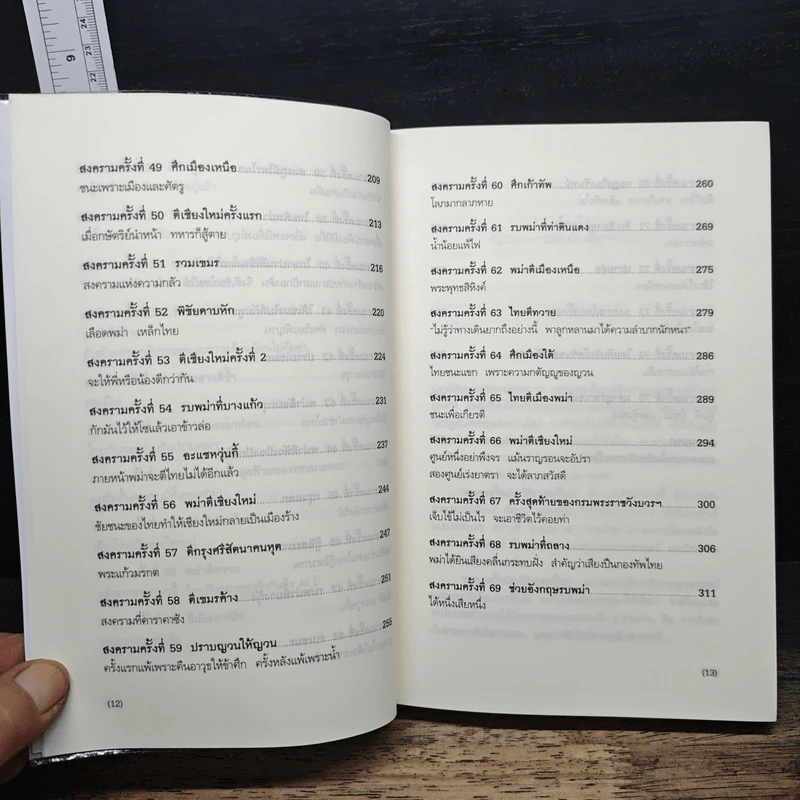 9
22
23
24
สงครามครั้งที่ 49 ศึกเมืองเหนือ 209
ชนะเพราะเมืองและศัตรู
สงครามครั้งที่ 50 ตีเชียงใหม่ครั้งแรก 213
เมื่อกษัตริย์นำหน้า ทหารก็สู้ตาย
สงครามครั้งที่ 51 รวมเขมร 216
สงครามแห่งความกลัว
สงครามครั้งที่ 52 พิชัยดาบหัก 220
เลือดพม่า เหล็กไทย
สงครามครั้งที่ 53 ตีเชียงใหม่ครั้งที่ 2 224
จะให้พี่หรือน้องดีกว่ากัน
สงครามครั้งที่ 54 รบพม่าที่บางแก้ว 231
กักมันไว้ให้โซแล้วเอาข้าวล่อ
สงครามครั้งที่ 55 อะแซหวุ่นกี้ 237
ภายหน้าพม่าจะตีไทยไม่ได้อีกแล้ว
สงครามครั้งที่ 56 พม่าตีเชียงใหม่ 244
ชัยชนะของไทยทำให้เชียงใหม่กลายเป็นเมืองร้าง
สงครามครั้งที่ 57 ตีกรุงศรีสัตนาคนหุต 247
พระแก้วมรกต
สงครามครั้งที่ 58 ตีเขมรค้าง 251
สงครามที่คาราคาซัง
สงครามครั้งที่ 59 ปราบญวนให้ญวน 255
ครั้งแรกแพ้เพราะคืนอาวุธให้ข้าศึก ครั้งหลังแพ้เพราะน้ำ
(12)
สงครามครั้งที่ 60 ศึกเก้าทัพ 260
โลภมากลาภหาย
สงครามครั้งที่ 61 รบพม่าที่ท่าดินแดง 269
น้ำน้อยแพ้ไฟ
สงครามครั้งที่ 62 พม่าตีเมืองเหนือ 275
พระพุทธสิหิงค์
สงครามครั้งที่ 63 ไทยตีทวาย 279
"ไม่รู้ว่าทางเดินยากถึงอย่างนี้ พาลูกหลานมาได้ความลำบากนักหนา"
สงครามครั้งที่ 64 ศึกเมืองใต้ 286
ไทยชนะแขก เพราะความกตัญญูของญวน
สงครามครั้งที่ 65 ไทยตีเมืองพม่า 289
ชนะเพื่อเกียรติ
สงครามครั้งที่ 66 พม่าตีเชียงใหม่ 294
ศูนย์หนึ่งอย่าพึงจร แม้นราญรอนจะอัปรา
สองศูนย์เร่งยาตรา จะได้ลาภสวัสดี
สงครามครั้งที่ 67 ครั้งสุดท้ายของกรมพระราชวังบวรฯ 300
เจ็บไข้ไม่เป็นไร จะเอาชีวิตไว้คอยท่า
สงครามครั้งที่ 68 รบพม่าที่ถลาง 306
พม่าได้ยินเสียงคลื่นกระทบฝั่ง สำคัญว่าเสียงปืนกองทัพไทย
สงครามครั้งที่ 69 ช่วยอังกฤษรบพม่า 311
ได้หนึ่งเสียหนึ่ง
(13)